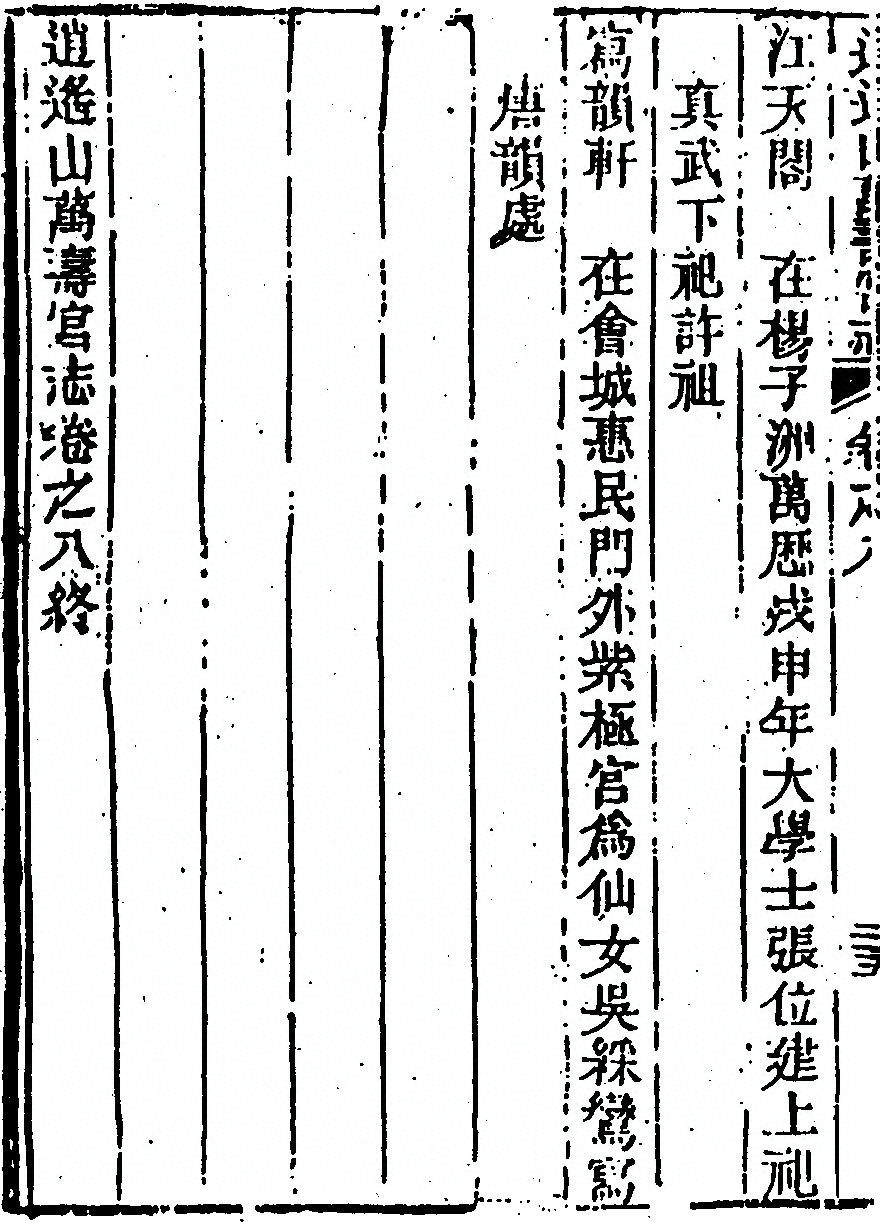 江天閣　在楊子洲萬歷戌申年大學士張位建上祀
真武下祀許祖
寫韻軒　在會城惠民門外紫極宫為仙女吳綵鸞寫
唐韻處
逍遙山萬壽宫志卷之八終